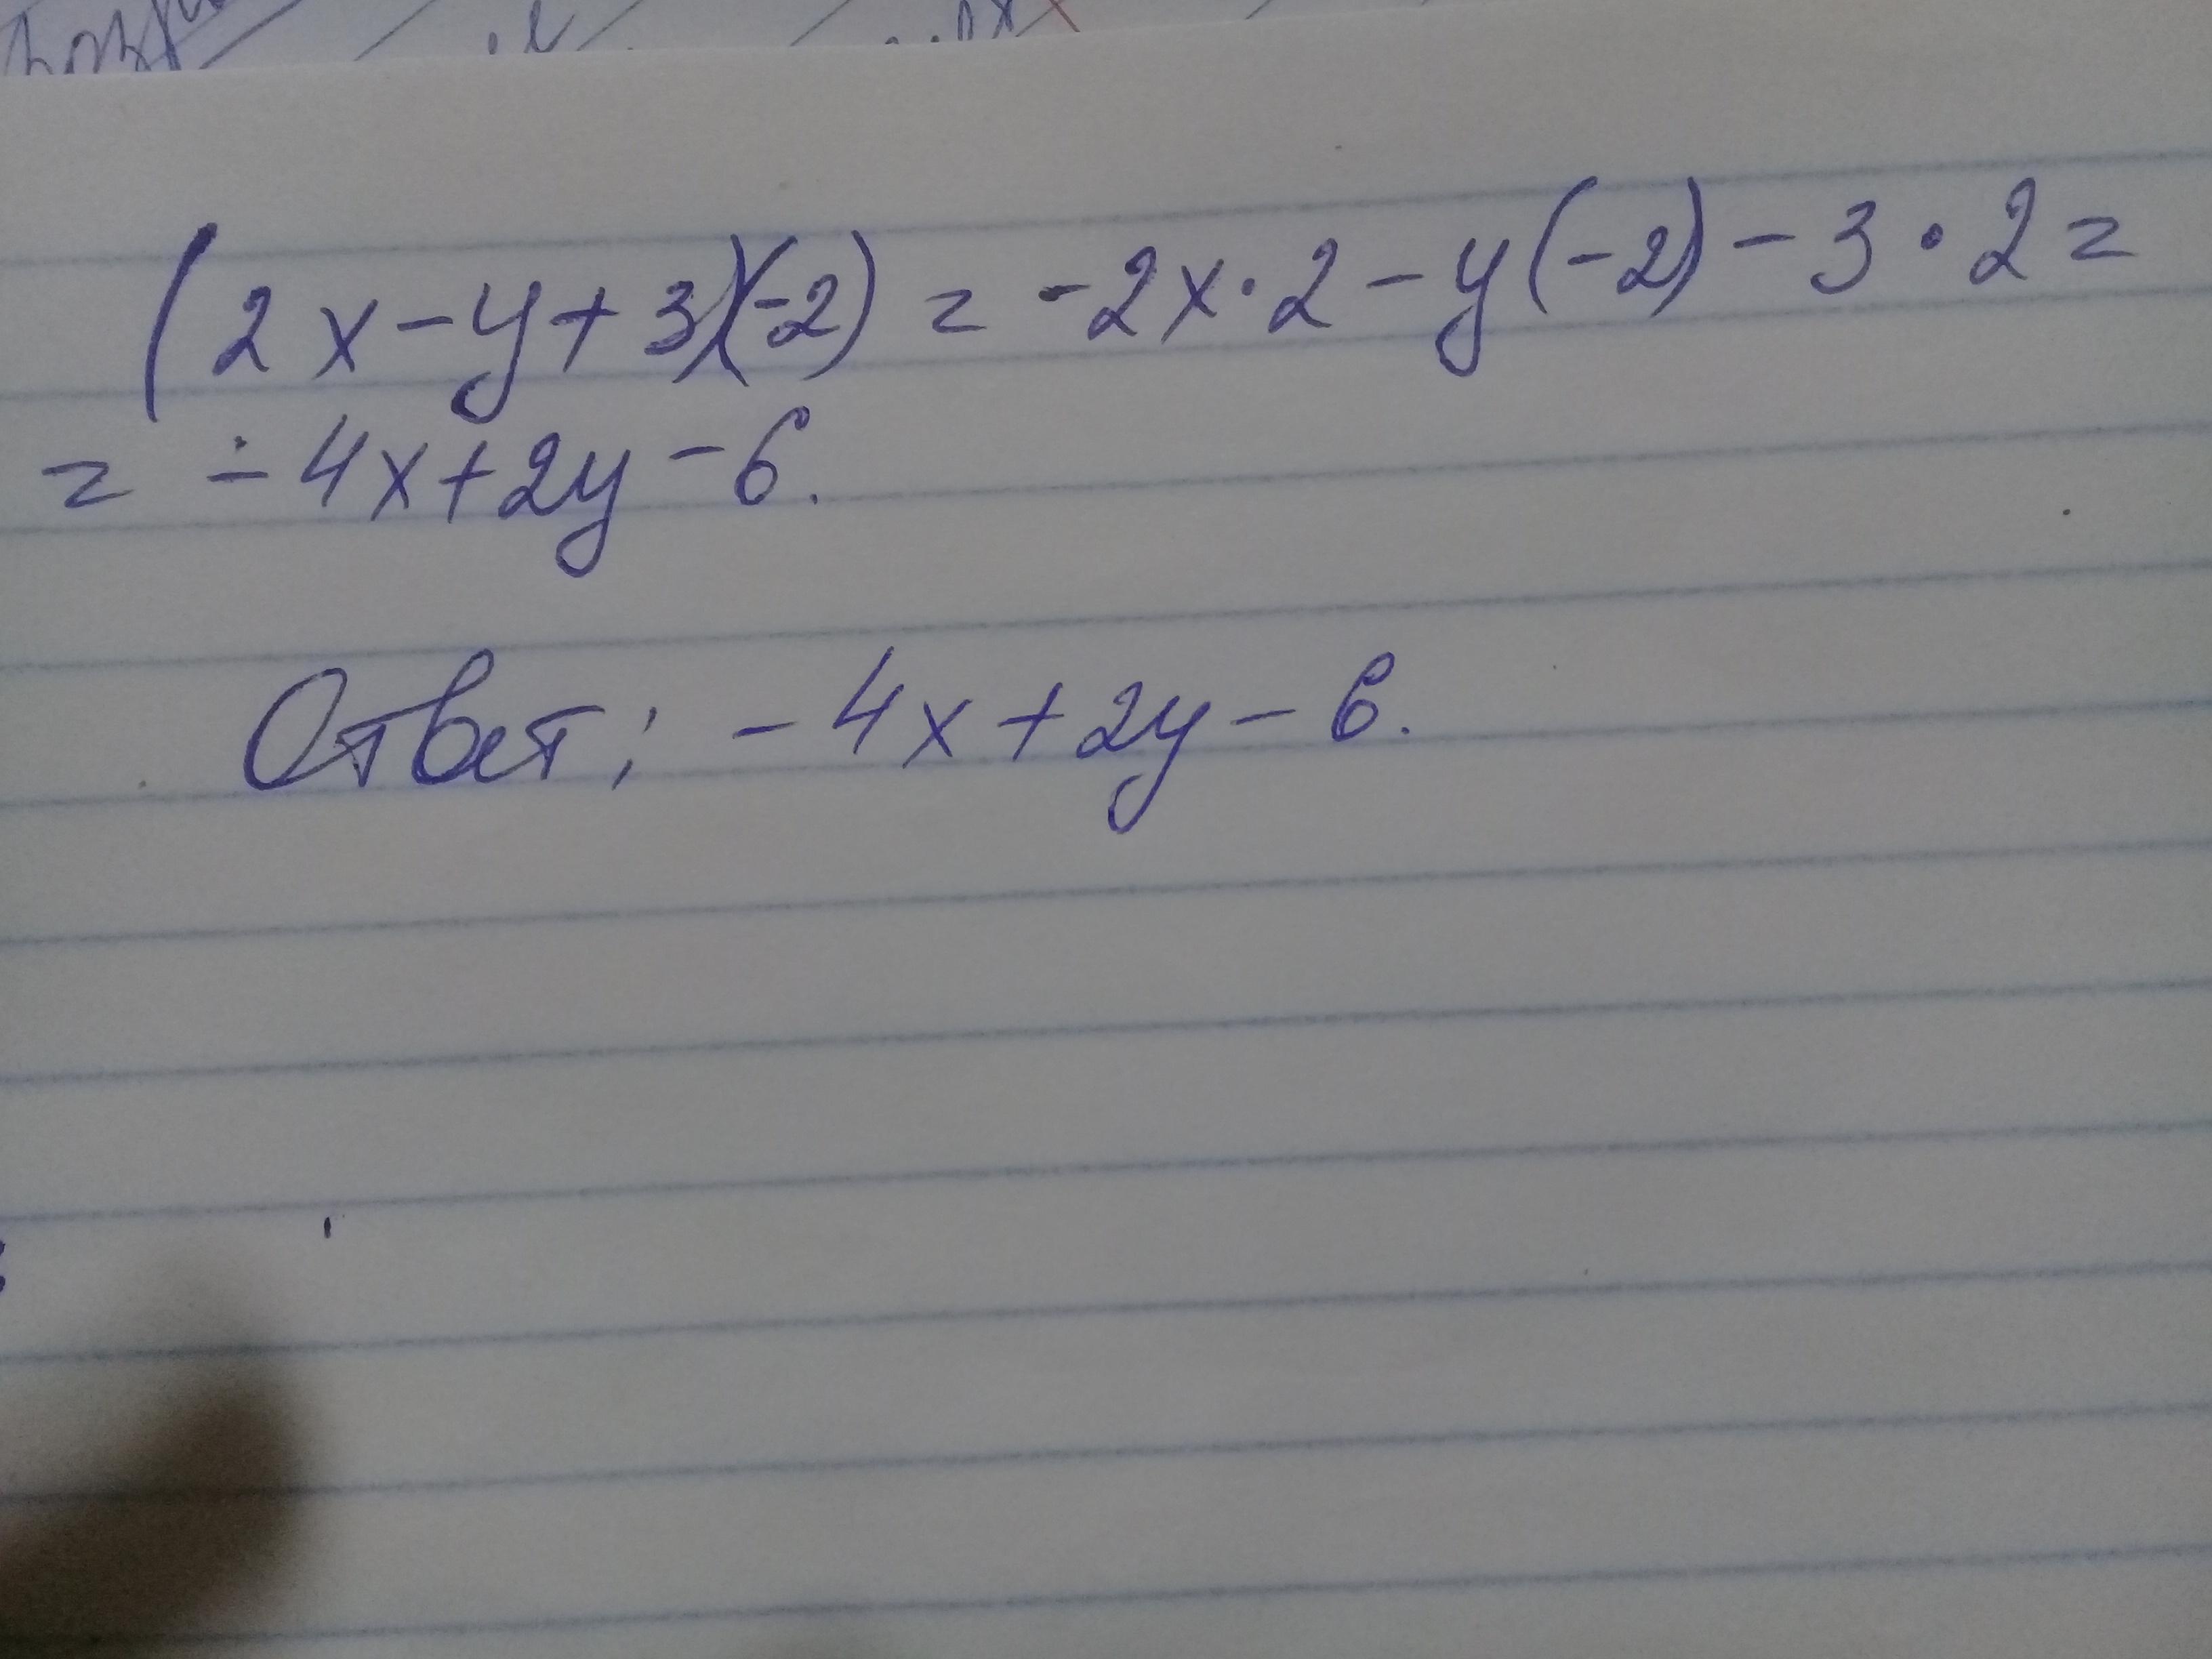 (2x-y+3)(-2) = -2x·2-y(-2)-3·2=
= -4x+2y-6.
Ответ: -4x+2y-6.